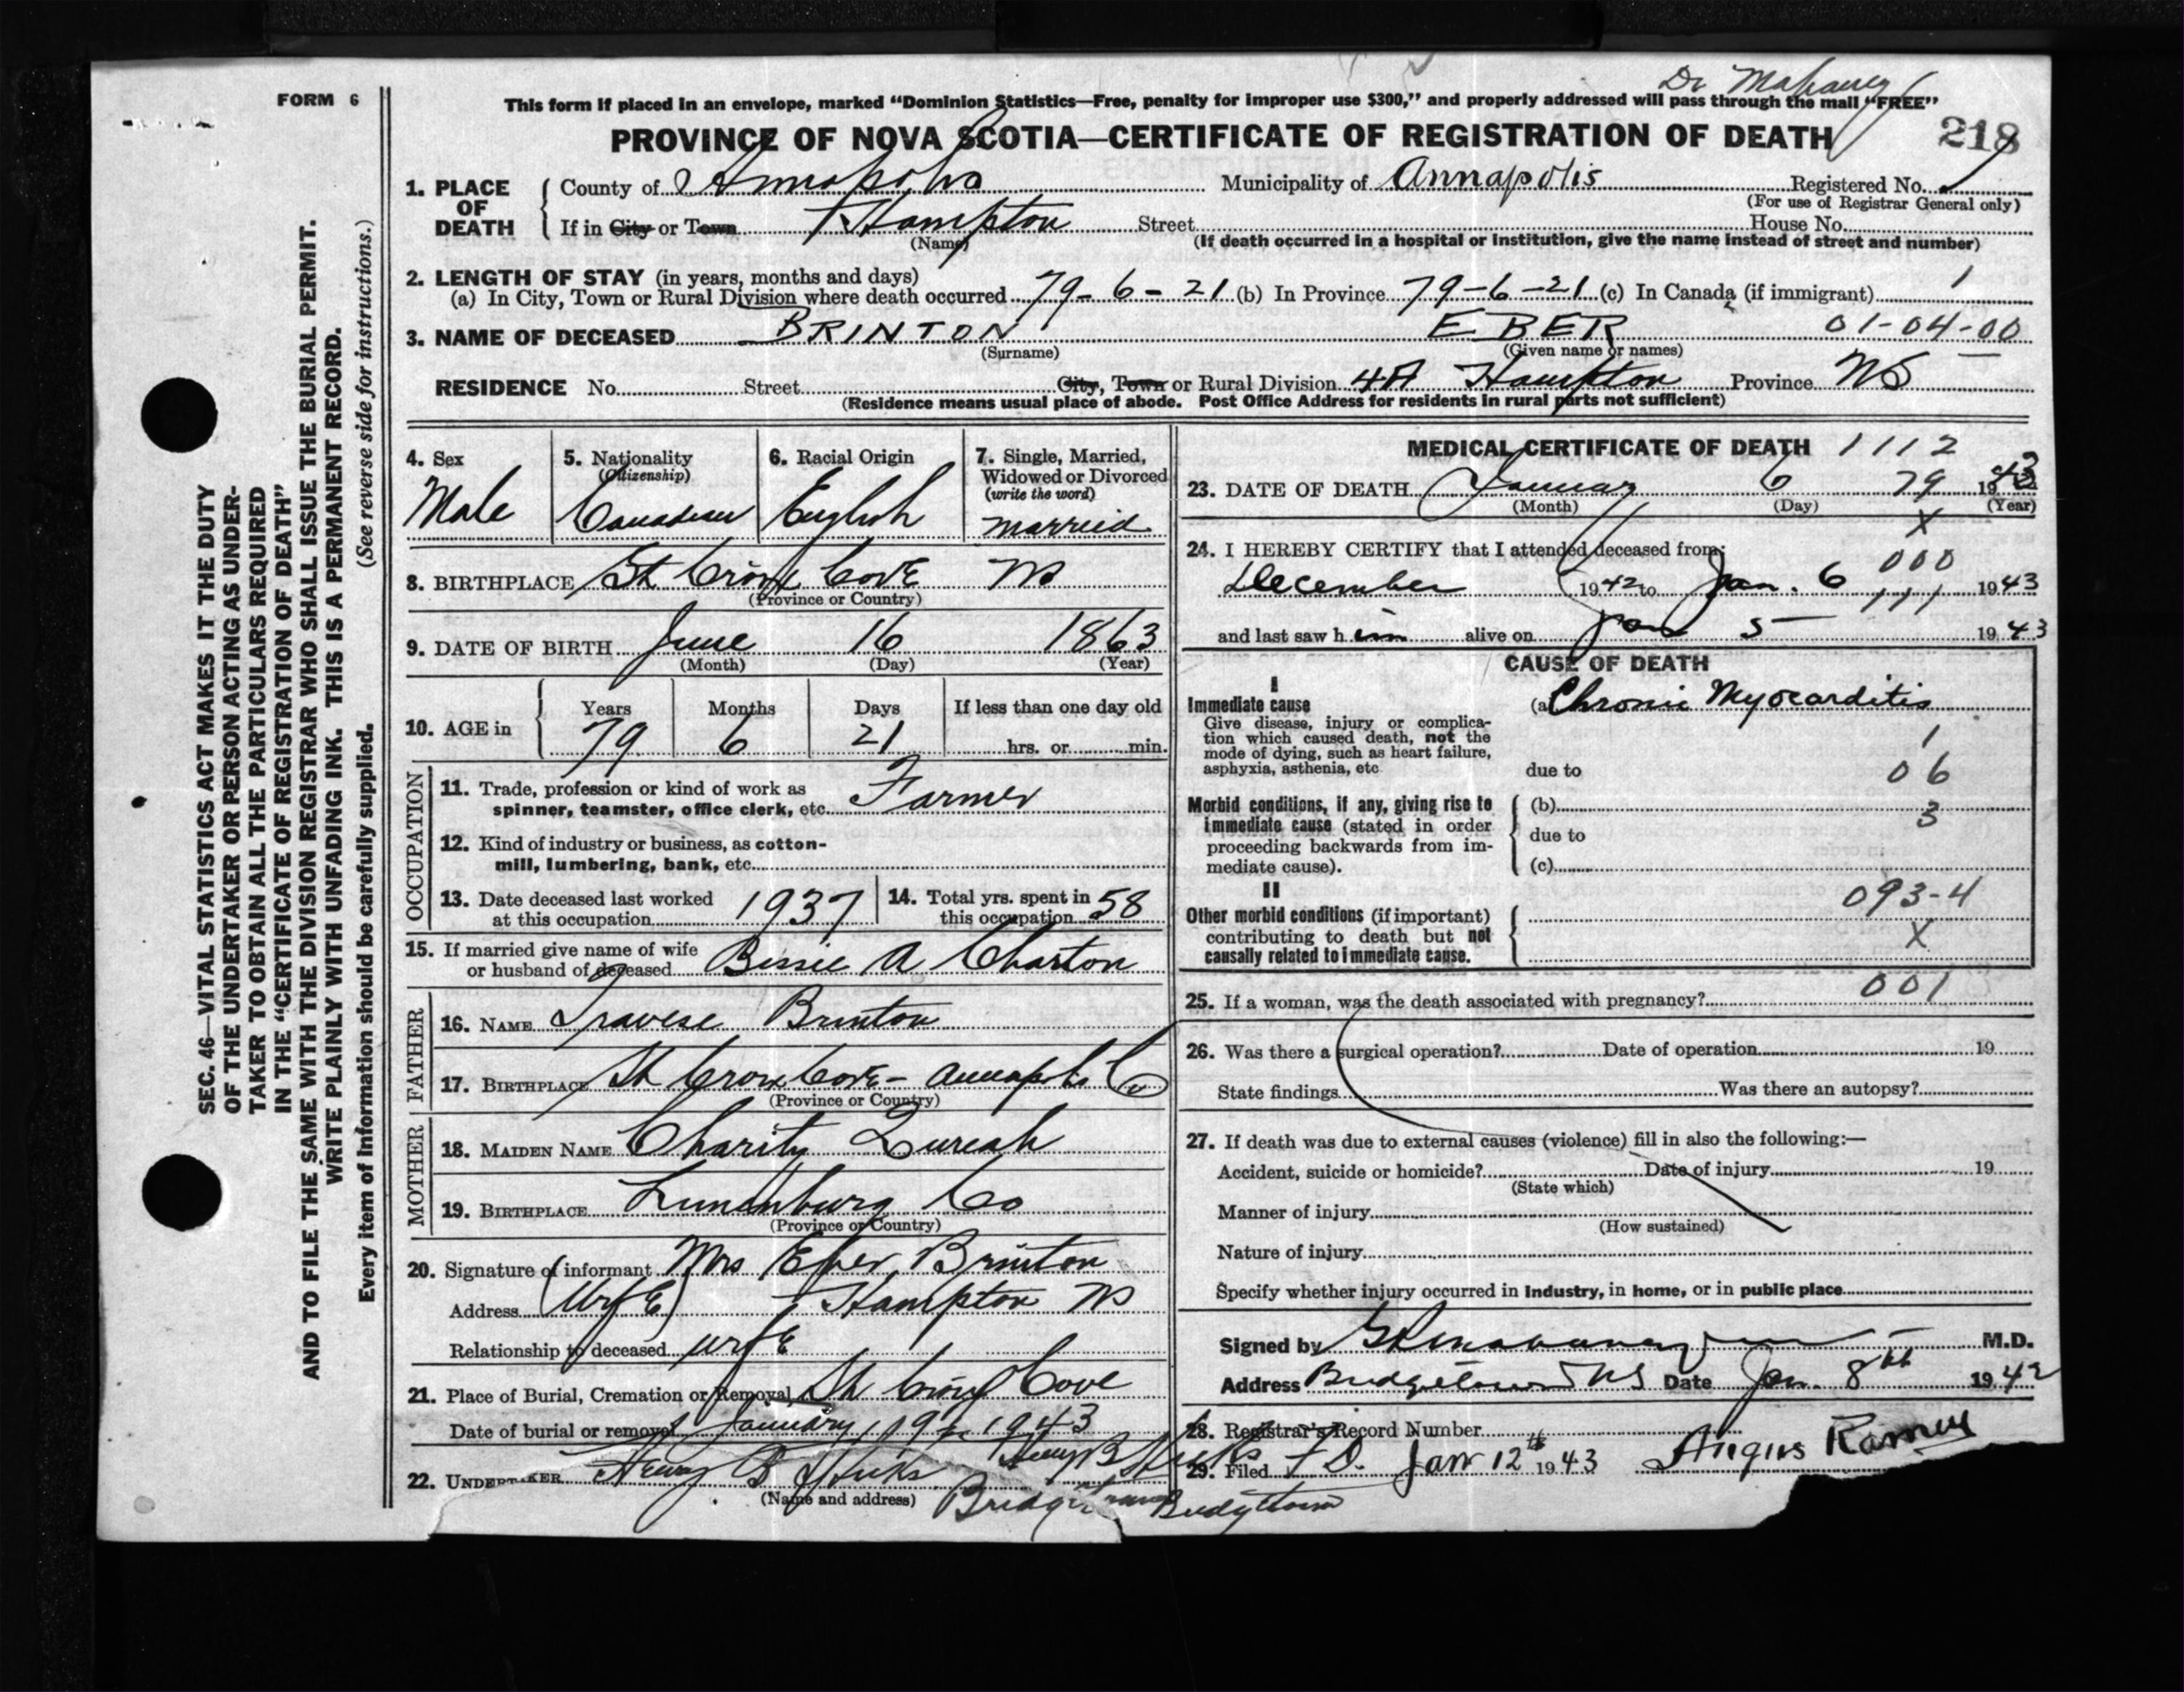 FORM 6
Dr Mahaney
This form if placed in an envelope, marked “Dominion Statistics—Free, penalty for improper use $300,” and properly addressed will pass through the mail “FREE”
PROVINCE OF NOVA SCOTIA—CERTIFICATE OF REGISTRATION OF DEATH
218
1. PLACE OF DEATH
County of Annapolis Municipality of Annapolis Registered No.
(For use of Registrar General only)
If in City or Town Hampton Street House No.
(Name) (If death occurred in a hospital or institution, give the name instead of street and number)
2. LENGTH OF STAY (in years, months and days)
(a) In City, Town or Rural Division where death occurred 79-6-21 (b) In Province 79-6-21 (c) In Canada (if immigrant) 1
3. NAME OF DECEASED BRINTON EBER 01-04-00
(Surname) (Given name or names)
RESIDENCE No. Street City, Town or Rural Division 4A Hampton Province NS
(Residence means usual place of abode. Post Office Address for residents in rural parts not sufficient)
SEC. 46—VITAL STATISTICS ACT MAKES IT THE DUTY
OF THE UNDERTAKER OR PERSON ACTING AS UNDER-
TAKER TO OBTAIN ALL THE PARTICULARS REQUIRED
IN THE “CERTIFICATE OF REGISTRATION OF DEATH”
AND TO FILE THE SAME WITH THE DIVISION REGISTRAR WHO SHALL ISSUE THE BURIAL PERMIT.
WRITE PLAINLY WITH UNFADING INK. THIS IS A PERMANENT RECORD.
Every item of Information should be carefully supplied. (See reverse side for instructions.)
4. Sex
Male
5. Nationality
(Citizenship)
Canadian
6. Racial Origin
English
7. Single, Married,
Widowed or Divorced
(write the word)
Marreid
8. BIRTHPLACE St Croix Cove NS
(Province or Country)
9. DATE OF BIRTH June 16 1863
(Month) (Day) (Year)
10. AGE in
Years Months Days If less than one day old
79 6 21 hrs. or min.
OCCUPATION
11. Trade, profession or kind of work as
spinner, teamster, office clerk, etc. Farmer
12. Kind of industry or business, as cotton-
mill, lumbering, bank, etc.
13. Date deceased last worked
at this occupation 1937
14. Total yrs. spent in
this occupation 58
15. If married give name of wife
or husband of deceased Bessie A Charton
FATHER
16. NAME Travese Brinton
17. BIRTHPLACE St Croix Cove - Annapolis Co
(Province or Country)
MOTHER
18. MAIDEN NAME Charity
19. BIRTHPLACE Lunenburg Co
(Province or Country)
20. Signature of informant Mrs Eber Brinton
Address (Wife) Hampton NS
Relationship to deceased wife
21. Place of Burial, Cremation or Removal St Croix Cove
Date of burial or removal January 9 1943
22. UNDERTAKER Henry B Hicks Henry B Hicks
(Name and address) Bridgetown Bridgetown
MEDICAL CERTIFICATE OF DEATH 1112
23. DATE OF DEATH January 6 79 1943
(Month) (Day) (Year)
X
24. I HEREBY CERTIFY that I attended deceased from:
000
December 1942 to Jan. 6 1943
111
and last saw h im alive on Jan 5 1943
CAUSE OF DEATH
I
Immediate cause (a) Chronic Myocarditis
Give disease, injury or complica-
tion which caused death, not the
mode of dying, such as heart failure,
asphyxia, asthenia, etc.
1
due to 06
Morbid conditions, if any, giving rise to
immediate cause (stated in order
proceeding backwards from im-
mediate cause).
(b) 3
due to
(c)
II
093-4
Other morbid conditions (if important)
contributing to death but not
causally related to immediate cause.
X
001
25. If a woman, was the death associated with pregnancy?
26. Was there a surgical operation? Date of operation 19
State findings Was there an autopsy?
27. If death was due to external causes (violence) fill in also the following:—
Accident, suicide or homicide? Date of injury 19
(State which)
Manner of injury
(How sustained)
Nature of injury
Specify whether injury occurred in Industry, in home, or in public place
Signed by M.D.
Address Bridgetown NS Date Jan. 8th 1942
28. Registrar's Record Number
29. Filed F.D. Jan 12th 1943 Angus Ramey